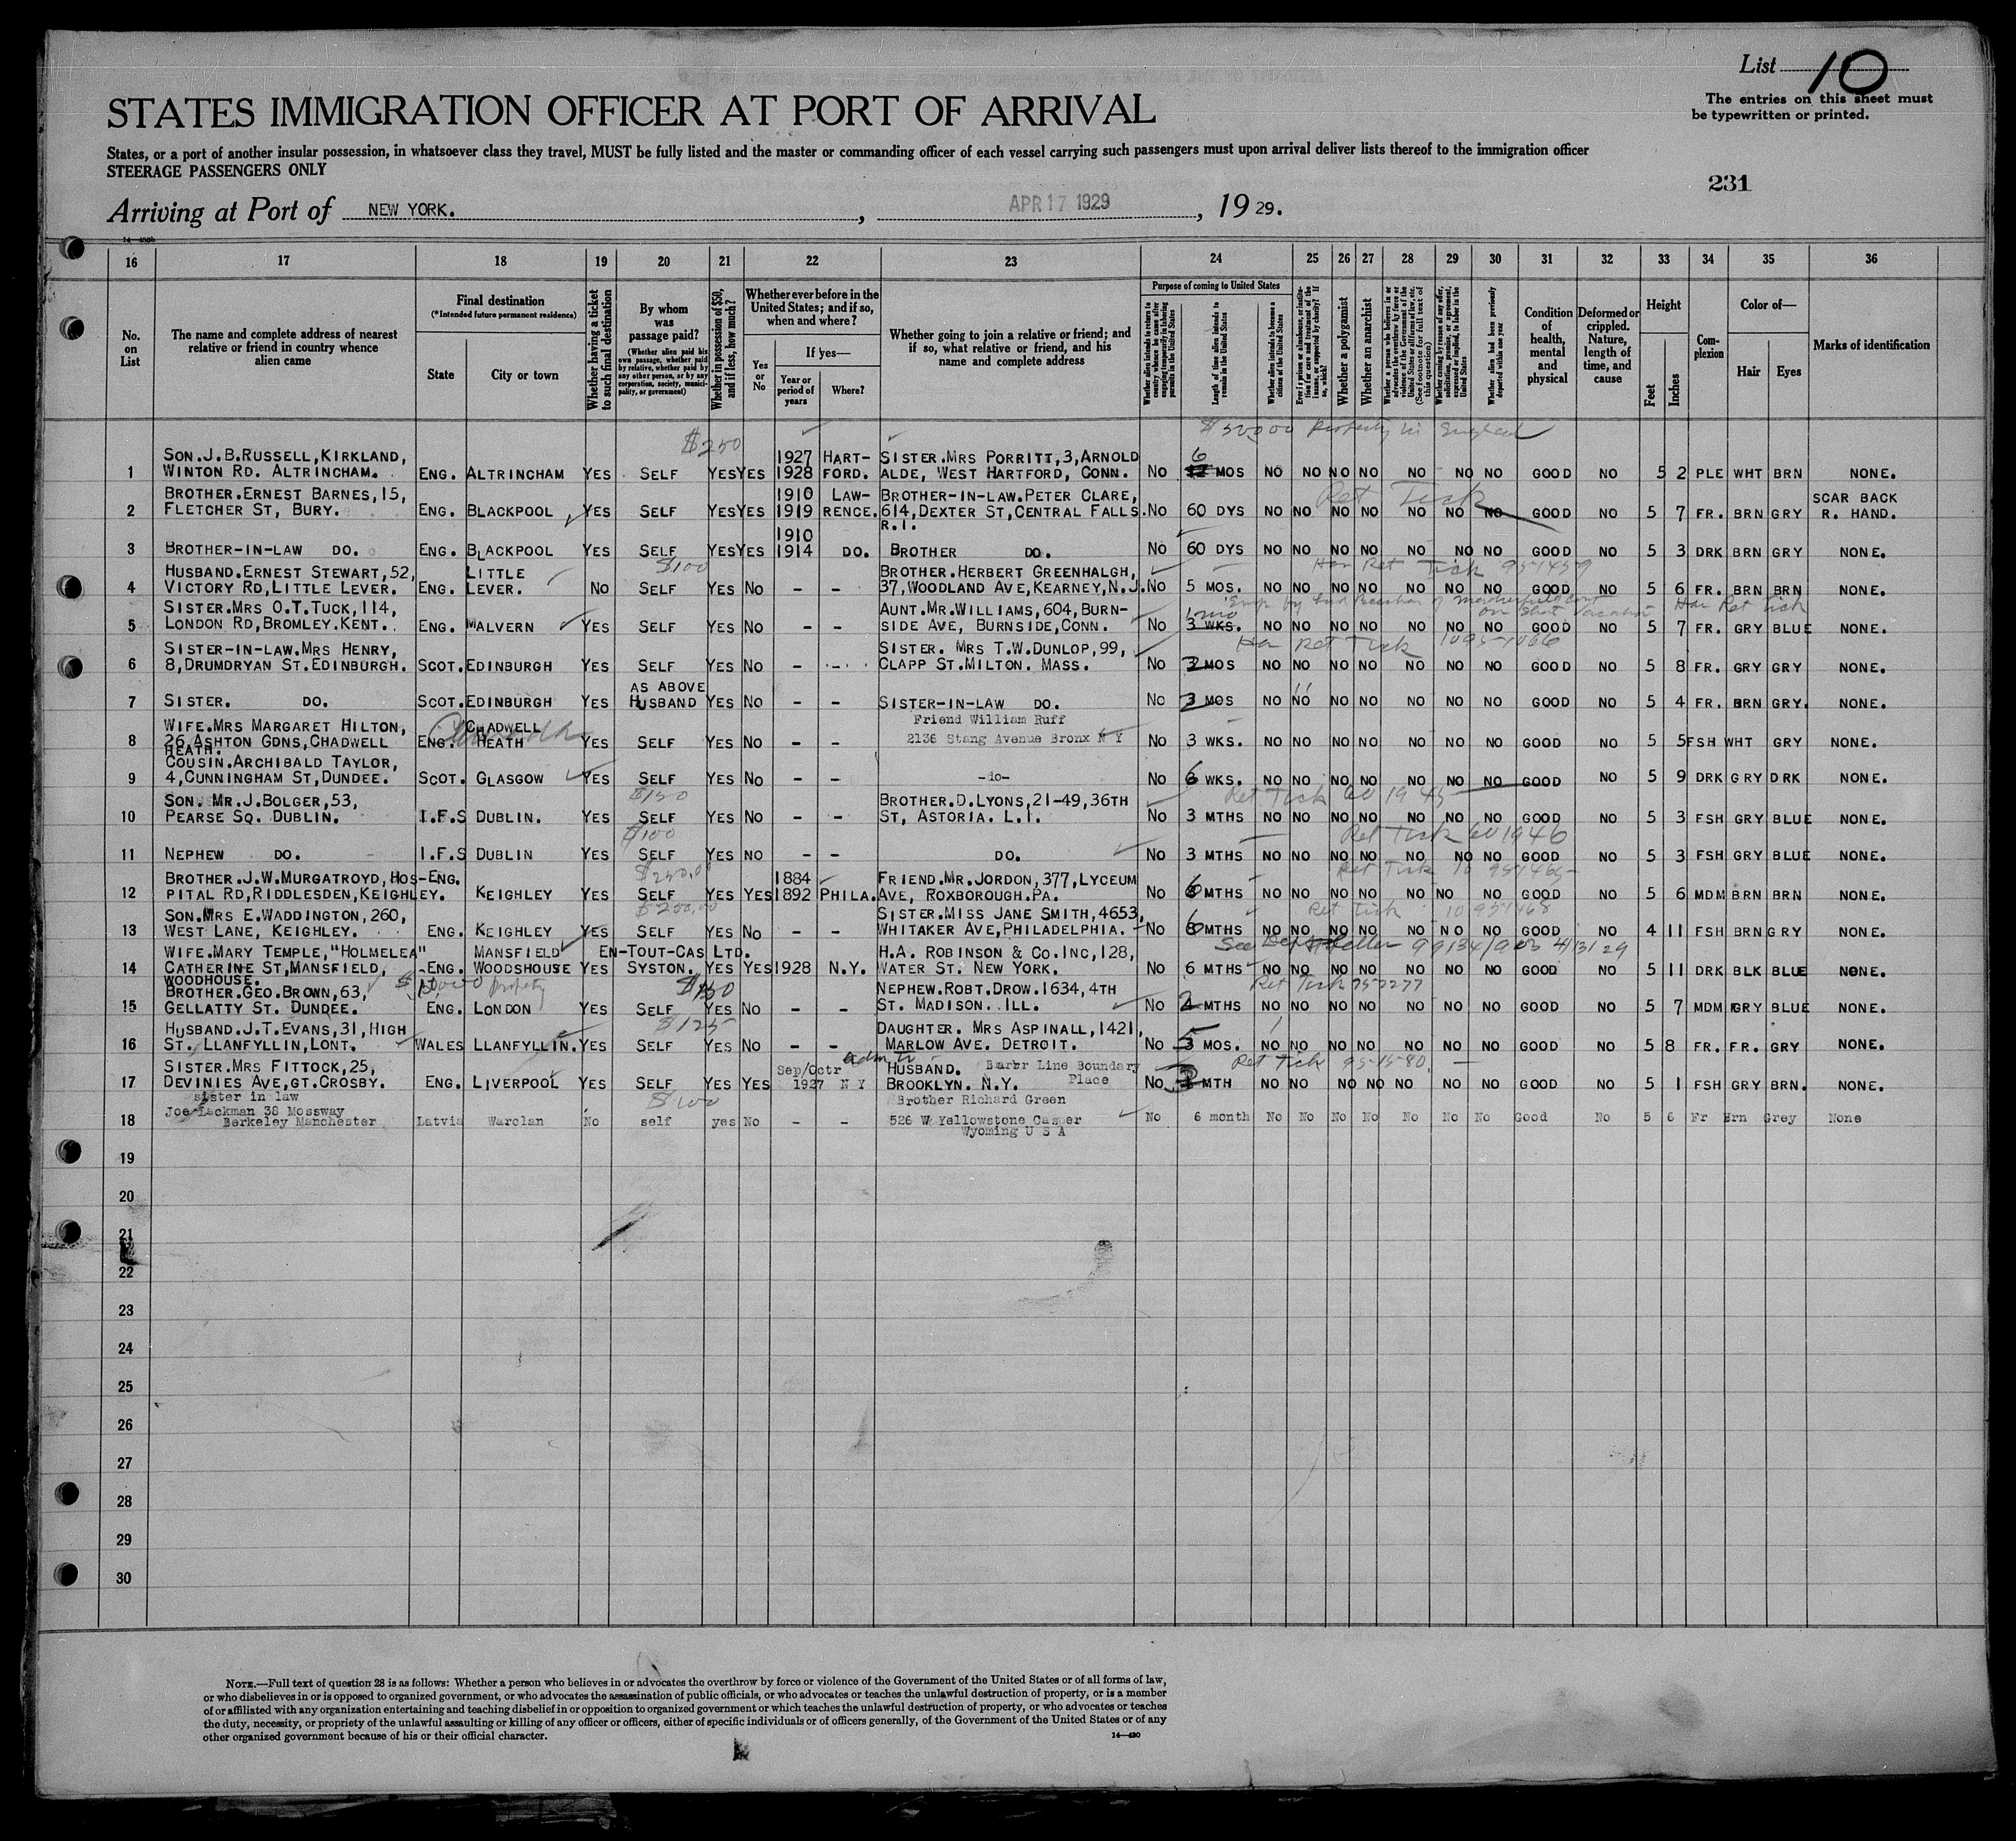 List 10
The entries on this sheet must
be typewritten or printed.
STATES IMMIGRATION OFFICER AT PORT OF ARRIVAL
States, or a port of another insular possession, in whatsoever class they travel, MUST be fully listed and the master or commanding officer of each vessel carrying such passengers must upon arrival deliver lists thereof to the immigration officer
STEERAGE PASSENGERS ONLY
231
Arriving at Port of NEW YORK. , APR 17 1929 , 19 29.
16 17 18 19 20 21 22 23 24 25 26 27 28 29 30 31 32 33 34 35 36
No. on List
The name and complete address of nearest relative or friend in country whence alien came
Final destination (*Intended future permanent residence)
State
City or town
Whether having a ticket to such final destination
By whom was passage paid?
(Whether alien paid his own passage, whether paid by relative, whether paid by any other person, or by any corporation, society, municipality, or government)
Whether in possession of $50, and if less, how much?
Whether ever before in the United States; and if so, when and where?
Yes or No
If yes—
Year or period of years
Where?
Whether going to join a relative or friend; and if so, what relative or friend, and his name and complete address
Purpose of coming to United States
Length of time alien intends to remain in the United States
Whether alien intends to become a citizen of the United States
Whether a polygamist
Whether an anarchist
Condition of health, mental and physical
Deformed or crippled. Nature, length of time, and cause
Height
Feet
Inches
Complexion
Color of—
Hair
Eyes
Marks of identification
$250 Property in England
SON.J.B.RUSSELL,KIRKLAND, 1927 HART- SISTER.MRS PORRITT,3,ARNOLD 6
1 WINTON RD. ALTRINCHAM. ENG. ALTRINCHAM YES SELF YES YES 1928 FORD. ALDE, WEST HARTFORD, CONN. NO MOS NO NO NO NO NO NO NO GOOD NO 5 2 PLE WHT BRN NONE.
BROTHER.ERNEST BARNES,15, 1910 LAW- BROTHER-IN-LAW.PETER CLARE, Ret Tick SCAR BACK
2 FLETCHER ST, BURY. ENG. BLACKPOOL YES SELF YES YES 1919 RENCE. 614,DEXTER ST,CENTRAL FALLS. NO 60 DYS NO NO NO NO NO NO NO GOOD NO 5 7 FR. BRN GRY R. HAND.
R.I.
1910
3 BROTHER-IN-LAW DO. ENG. BLACKPOOL YES SELF YES YES 1914 DO. BROTHER DO. NO 60 DYS NO NO NO NO NO NO NO GOOD NO 5 3 DRK BRN GRY NONE.
HUSBAND.ERNEST STEWART,52, LITTLE $100 BROTHER.HERBERT GREENHALGH, Ret Tick
4 VICTORY RD, LITTLE LEVER. ENG. LEVER. NO SELF YES NO - - 37,WOODLAND AVE,KEARNEY,N.J. NO 5 MOS. NO NO NO NO NO NO NO GOOD NO 5 6 FR. BRN BRN NONE.
SISTER.MRS O.T.TUCK,114, AUNT.MR.WILLIAMS,604,BURN- Ret Tick
5 LONDON RD,BROMLEY.KENT. ENG. MALVERN YES SELF YES NO - - SIDE AVE, BURNSIDE,CONN. NO 3 WKS. NO NO NO NO NO NO NO GOOD NO 5 7 FR. GRY BLUE NONE.
SISTER-IN-LAW.MRS HENRY, SISTER. MRS T.W.DUNLOP,99, Ret Tick
6 8,DRUMDRYAN ST.EDINBURGH. SCOT. EDINBURGH YES SELF YES NO - - CLAPP ST.MILTON. MASS. NO MOS NO NO NO NO NO NO NO GOOD NO 5 8 FR. GRY GRY NONE.
AS ABOVE
7 SISTER. DO. SCOT. EDINBURGH YES HUSBAND YES NO - - SISTER-IN-LAW DO. NO 3 MOS NO NO NO NO NO NO NO GOOD NO 5 4 FR. BRN GRY. NONE.
WIFE.MRS MARGARET HILTON, CHADWELL Friend William Ruff
8 26 ASHTON GDNS,CHADWELL ENG. HEATH YES SELF YES NO - - 2136 Stang Avenue Bronx N Y NO 3 WKS. NO NO NO NO NO NO NO GOOD NO 5 5 FSH WHT GRY NONE.
HEATH.
COUSIN.ARCHIBALD TAYLOR,
9 4,CUNNINGHAM ST,DUNDEE. SCOT. GLASGOW YES SELF YES NO - - -do- NO 6 WKS. NO NO NO NO NO NO NO GOOD NO 5 9 DRK GRY DRK NONE.
SON. MR.J.BOLGER,53, $150 BROTHER.D.LYONS,21-49,36TH Ret Tick
10 PEARSE SQ. DUBLIN. I.F.S DUBLIN. YES SELF YES NO - - ST, ASTORIA. L.I. NO 3 MTHS NO NO NO NO NO NO NO GOOD NO 5 3 FSH GRY BLUE NONE.
$100 Ret Tick
11 NEPHEW DO. I.F.S DUBLIN YES SELF YES NO - - DO. NO 3 MTHS NO NO NO NO NO NO NO GOOD NO 5 3 FSH GRY BLUE NONE.
BROTHER.J.W.MURGATROYD,HOS-ENG. 1884 FRIEND.MR.JORDON,377,LYCEUM Ret Tick
12 PITAL RD,RIDDLESDEN,KEIGHLEY. KEIGHLEY YES SELF YES YES 1892 PHILA. AVE, ROXBOROUGH.PA. NO 6 MTHS NO NO NO NO NO NO NO GOOD NO 5 6 MDM BRN BRN NONE.
SON.MRS E.WADDINGTON,260, $200.00 SISTER.MISS JANE SMITH,4653, Ret Tick
13 WEST LANE, KEIGHLEY. ENG. KEIGHLEY YES SELF YES NO - - WHITAKER AVE,PHILADELPHIA. NO 6 MTHS NO NO NO NO NO NO NO GOOD NO 4 11 FSH BRN GRY NONE.
WIFE.MARY TEMPLE,"HOLMELEA" MANSFIELD EN-TOUT-CAS LTD. H.A. ROBINSON & CO.INC,128,
14 CATHERINE ST,MANSFIELD, ENG. WOODSHOUSE YES SYSTON. YES YES 1928 N.Y. WATER ST. NEW YORK. NO 6 MTHS NO NO NO NO NO NO NO GOOD NO 5 11 DRK BLK BLUE NONE.
WOODHOUSE.
BROTHER.GEO.BROWN,63, Property NEPHEW.ROBT.DROW.1634,4TH Ret Tick
15 GELLATTY ST. DUNDEE. ENG. LONDON YES SELF YES NO - - ST. MADISON. ILL. NO 2 MTHS NO NO NO NO NO NO NO GOOD NO 5 7 MDM GRY BLUE NONE.
HUSBAND.J.T.EVANS,31,HIGH $125 DAUGHTER. MRS ASPINALL,1421, 5
16 ST. LLANFYLLIN,LONT. WALES LLANFYLLIN. YES SELF YES NO - - MARLOW AVE. DETROIT. NO 3 MOS. NO NO NO NO NO NO NO GOOD NO 5 8 FR. FR. GRY NONE.
SISTER.MRS FITTOCK,25, Sep/Octr HUSBAND. Barbr Line Boundary Ret Tick
17 DEVINIES AVE,GT.CROSBY. ENG. LIVERPOOL YES SELF YES YES 1927 N Y BROOKLYN. N.Y. Place NO MTH NO NO NO NO NO NO NO GOOD NO 5 1 FSH GRY BRN. NONE.
sister in law $100 Brother Richard Green
Joe Lackman 38 Mossway
18 Berkeley Manchester Latvia Warclan No self yes No - - 526 W Yellowstone Casper No 6 month No No No No No No No Good No 5 6 Fr Brn Grey None
Wyoming U S A
19
20
21
22
23
24
25
26
27
28
29
30
NOTE.—Full text of question 28 is as follows: Whether a person who believes in or advocates the overthrow by force or violence of the Government of the United States or of all forms of law,
or who disbelieves in or is opposed to organized government, or who advocates the assassination of public officials, or who advocates or teaches the unlawful destruction of property, or is a member
of or affiliated with any organization entertaining and teaching disbelief in or opposition to organized government or which teaches the unlawful destruction of property, or who advocates or teaches
the duty, necessity, or propriety of the unlawful assaulting or killing of any officer or officers, either of specific individuals or of officers generally, of the Government of the United States or of any
other organized government because of his or their official character.
14—430